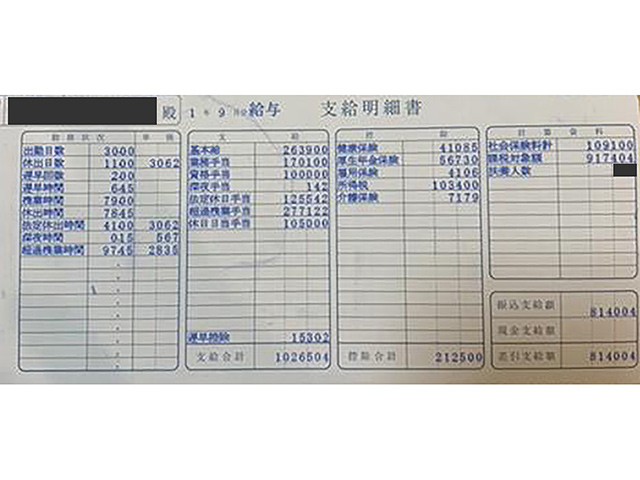 殿 1年 9月分 給与 支給明細書
勤務状況 単価
出勤日数 3000
休出日数 1100 3062
遅早回数 200
遅早時間 645
残業時間 7900
休出時間 7845
法定休出時間 4100 3062
深夜時間 015 567
超過残業時間 9745 2835
支 給
基本給 263900
業務手当 170100
資格手当 100000
深夜手当 142
法定休日手当 125542
超過残業手当 277122
休日出手当 105000
遅早控除 15302
支給合計 1026504
控 除
健康保険 41085
厚生年金保険 56730
雇用保険 4106
所得税 103400
介護保険 7179
控除合計 212500
計算資料
社会保険料計 109100
課税対象額 917404
扶養人数
振込支給額 814004
現金支給額
差引支給額 814004